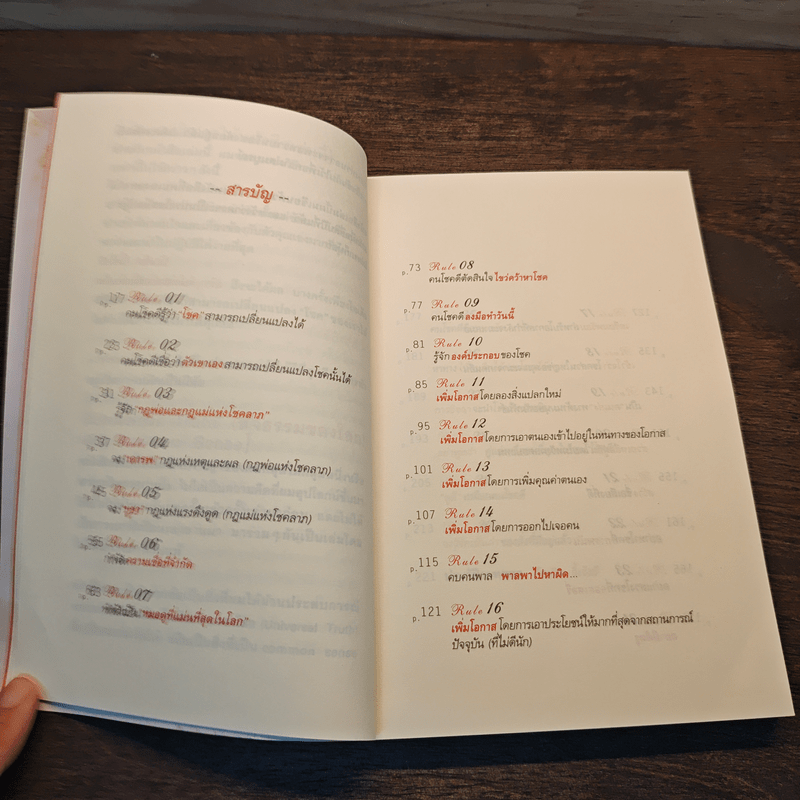 -- สารบัญ --
Rule 01
คนโชคดีรู้ว่า "โชค" สามารถเปลี่ยนแปลงได้
Rule 02
คนโชคดีเชื่อว่าตัวเขาเองสามารถเปลี่ยนแปลงโชคนั้นได้
Rule 03
รู้จัก "กฎพ่อและกฎแม่แห่งโชคลาภ"
Rule 04
กฎแห่งเหตุและผล (กฎพ่อแห่งโชคลาภ)
Rule 05
กฎแห่งแรงดึงดูด (กฎแม่แห่งโชคลาภ)
Rule 06
ความเชื่อที่จำกัด
Rule 07
"หมอดูที่แม่นที่สุดในโลก"
p.73 Rule 08
คนโชคดีตัดสินใจไขว่คว้าหาโชค
p.77 Rule 09
คนโชคดีลงมือทำวันนี้
p.81 Rule 10
รู้จักองค์ประกอบของโชค
p.85 Rule 11
เพิ่มโอกาสโดยลองสิ่งแปลกใหม่
p.95 Rule 12
เพิ่มโอกาสโดยการเอาตนเองเข้าไปอยู่ในหนทางของโอกาส
p.101 Rule 13
เพิ่มโอกาสโดยการเพิ่มคุณค่าตนเอง
p.107 Rule 14
เพิ่มโอกาสโดยการออกไปเจอคน
p.115 Rule 15
คบคนพาล พาลพาไปหาผิด...
p.121 Rule 16
เพิ่มโอกาสโดยการเอาประโยชน์ให้มากที่สุดจากสถานการณ์
ปัจจุบัน (ที่ไม่ดีนัก)